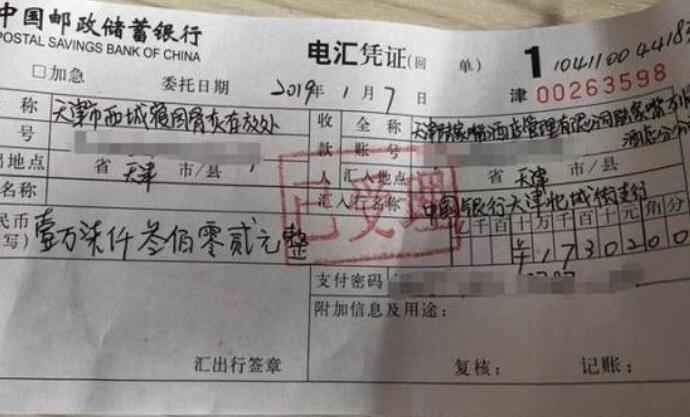 中国邮政储蓄银行
POSTAL SAVINGS BANK OF CHINA
电汇凭证(回 单) 1 104110044183
□加急 委托日期 2019年1月7日 津 00263598
称 天津市西城寝园骨灰存放处 收 全称 天津陆家嘴酒店管理有限公司陆家嘴
酒店分公
号 款 账号
出地点 省 天津 市/县 人 汇入地点 省 天津 市/县
名称 汇入行名称 中国银行天津北城街支行
民币
写) 壹万柒仟叁佰零贰元整 亿千百十万千百十元角分
¥1730200
已受理
支付密码
附加信息及用途:
汇出行签章 复核: 记账: